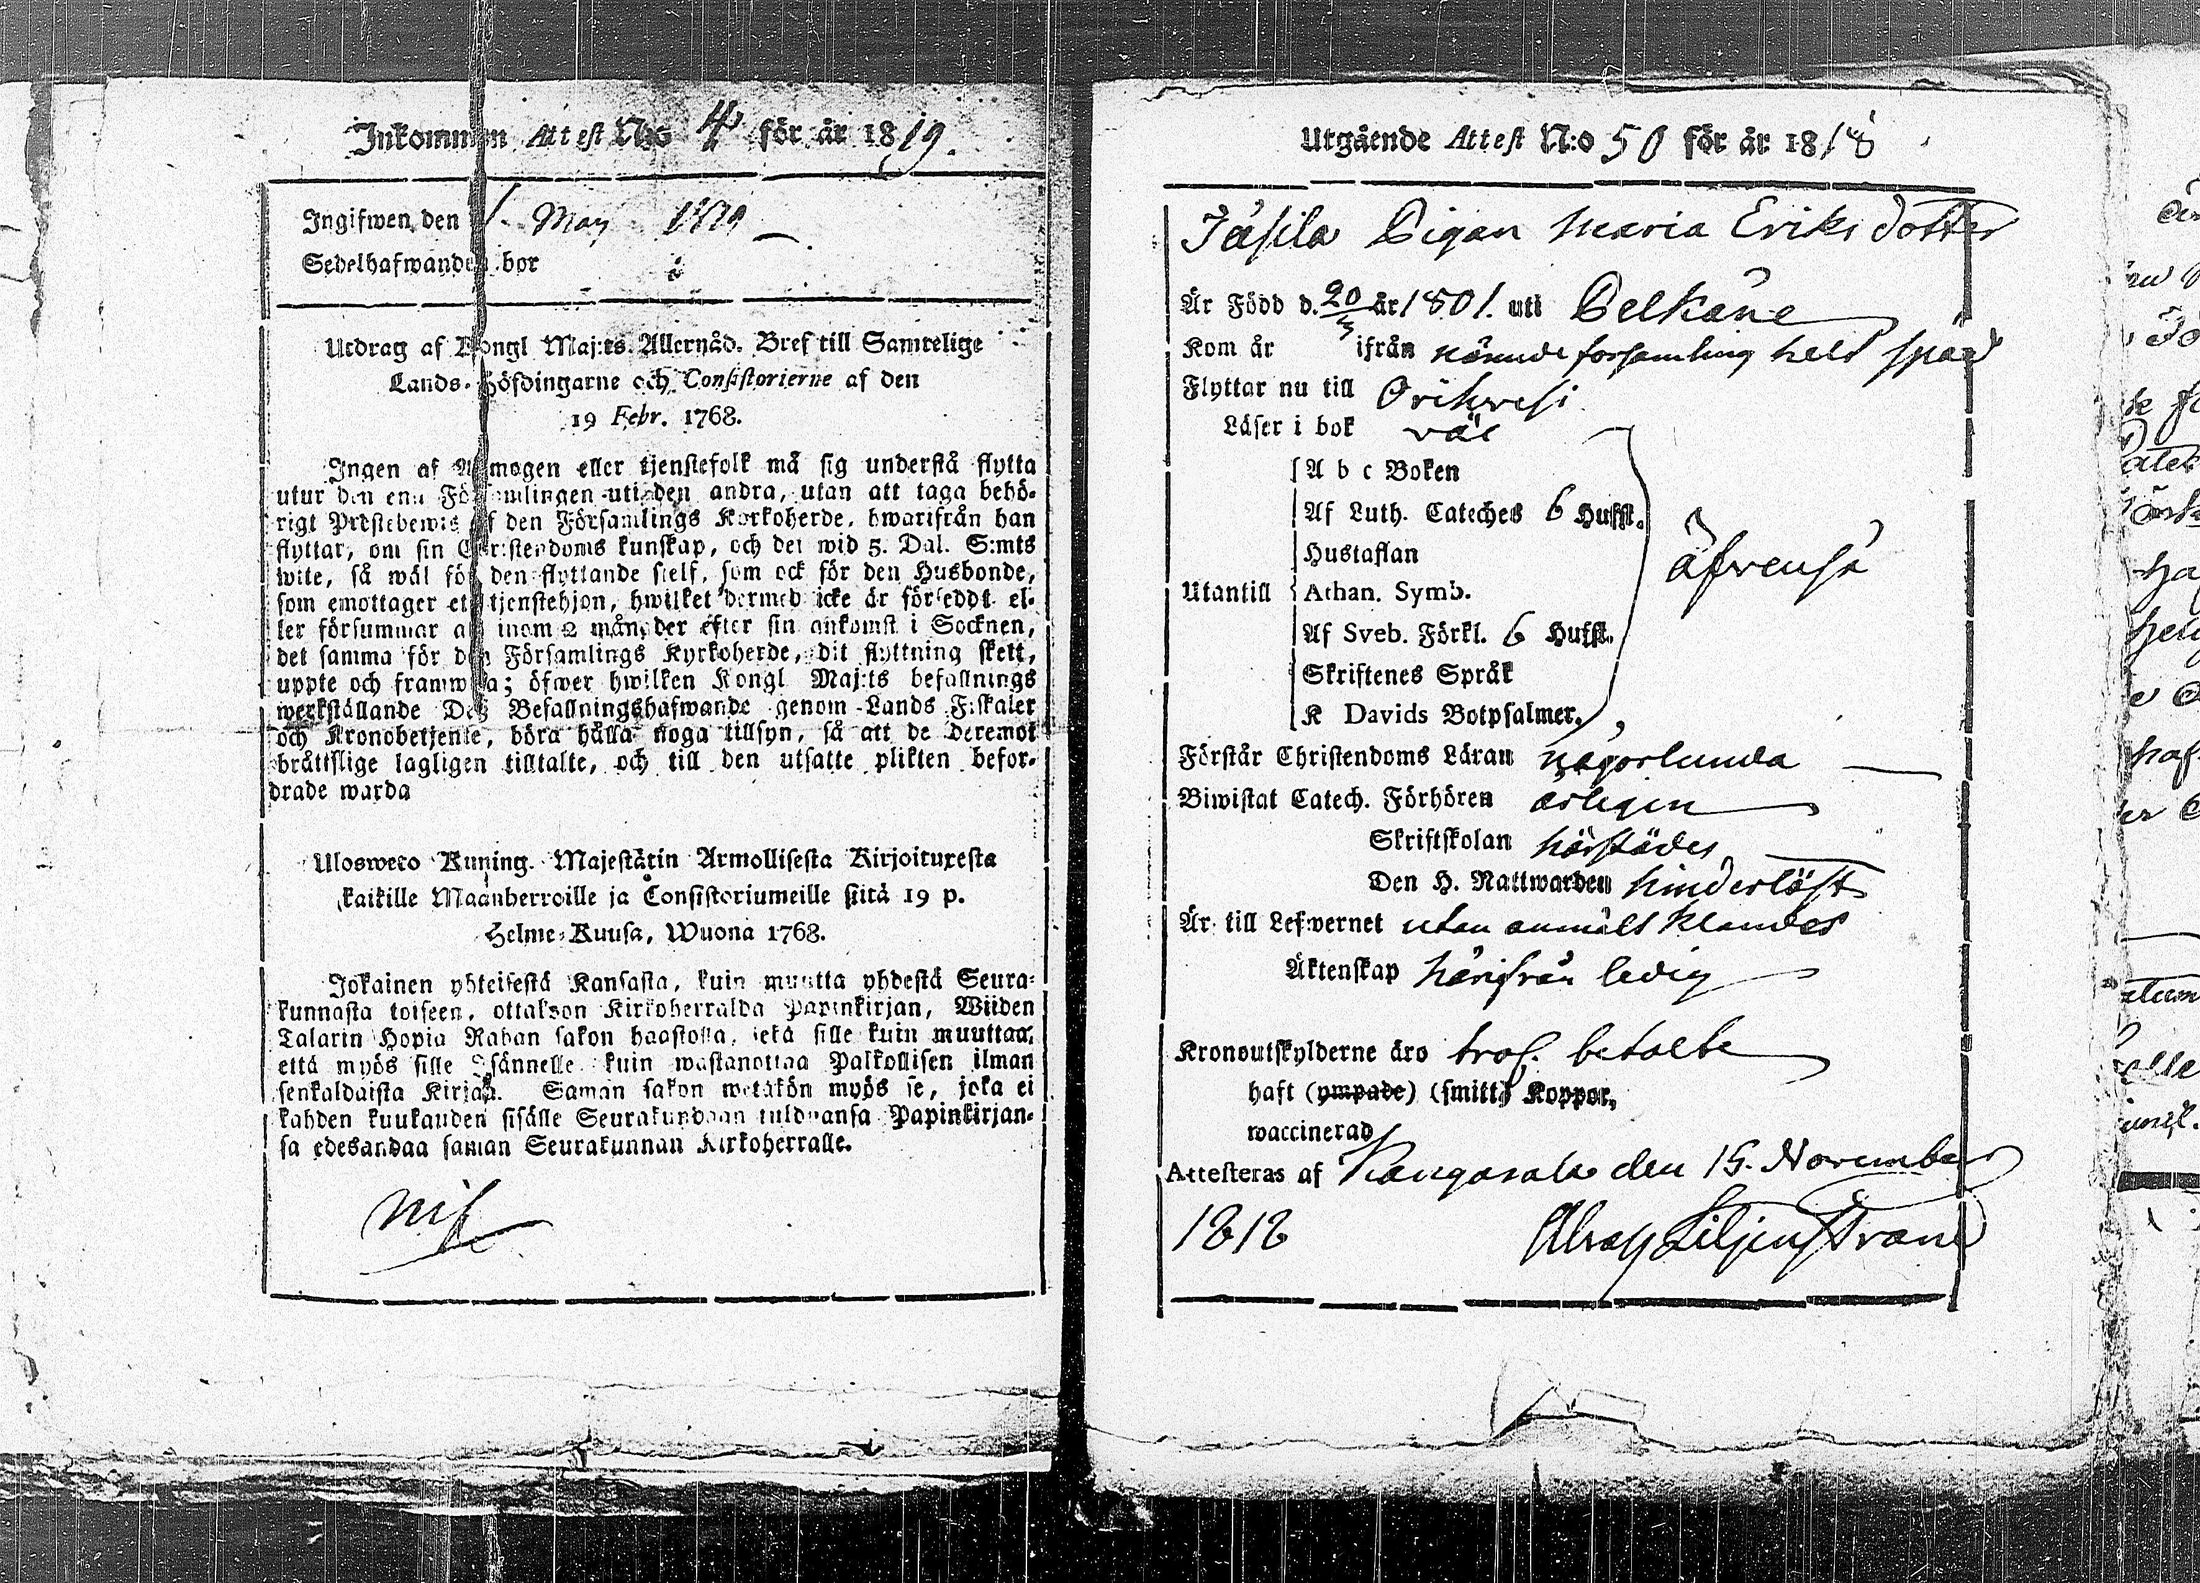 Inkommen Attest N:o 4 för år 1819.
Ingifwen den 1. May 1819
Sedelhafwanden bor i
Utdrag af Kongl Maj:ts Allernåd. Bref till Samtelige
Lands-Höfdingarne och Consistorierne af den
19 Febr. 1768.
Ingen af Allmogen eller tjenstefolk må sig understå flytta
utur den ena Församlingen uti den andra, utan att taga behö-
rigt Prestebewis af den Församlings Kyrkoherde, hwarifrån han
flyttar, om sin Christendoms kunskap, och det wid 5. Dal. S:mts
wite, så wäl för den flyttande sielf, som ock för den Husbonde,
som emottager ett tjenstehjon, hwilket dermed icke är försedd: el-
ler försummar att inom 2 månader efter sin ankomst i Socknen,
det samma för den Församlings Kyrkoherde, dit flyttning skett,
uppte och framwisa; öfwer hwilken Kongl Maj:ts befallnings
werkställande Des Befallningshafwande genom Lands Fiskaler
och Kronobetjente, böra hålla noga tillsyn, så att de deremot
bråttslige lagligen tilltalte, och till den utsatte plikten befor-
drade warda
Uloswero Kuning. Majestätin Armollisesta Kirjoituxesta
kaikille Maanherroille ja Consistoriumeille siitä 19 p.
Helme-Kuusa, Wuona 1768.
Jokainen yhteisestä Kansasta, kuin muutta yhdestä Seura-
kunnasta toiseen, ottakoon Kirkoherralda Papinkirjan, Wiiden
Talarin Hopia Rahan sakon haastolla, sekä sille kuin muuttaa,
että myös sille Isännelle kuin wastanottaa Palkollisen ilman
senkaldaista Kirjaa. Saman sakon wetäkön myös se, joka ei
kahden kuukauden sisälle Seurakundaan tulduansa Papinkirjan-
sa edesandaa saman Seurakunnan Kirkoherralle.
Utgående Attest N:o 50 för år 1818
Jäsila Pigan Maria Eriksdotter
Är Född d. 20/3 år 1801. uti Pelkäne
Kom år ifrån nämnde församling helt späd
Flyttar nu till Orihwesi
Läser i bok väl
A b c Boken
Af Luth. Cateches 6 Hufst.
Hustaflan
Utantill Athan. Symb. äfvenså
Af Sveb. Förkl. 6 Hufst.
Skriftenes Språk
K Davids Botpsalmer,
Förstår Christendoms Läran någorlunda
Biwistat Catech. Förhören årligen
Skriftskolan härstädes
Den H. Nattwarden hinderlöst
Är till Lefwernet utan anmält klander
Äktenskap härifrån ledig
Kronoutskylderne äro betalte
haft (ympade) (smitt) Koppor,
waccinerad
Attesteras af Kangasala den 15. November
1818 Abrah Liljenstrand